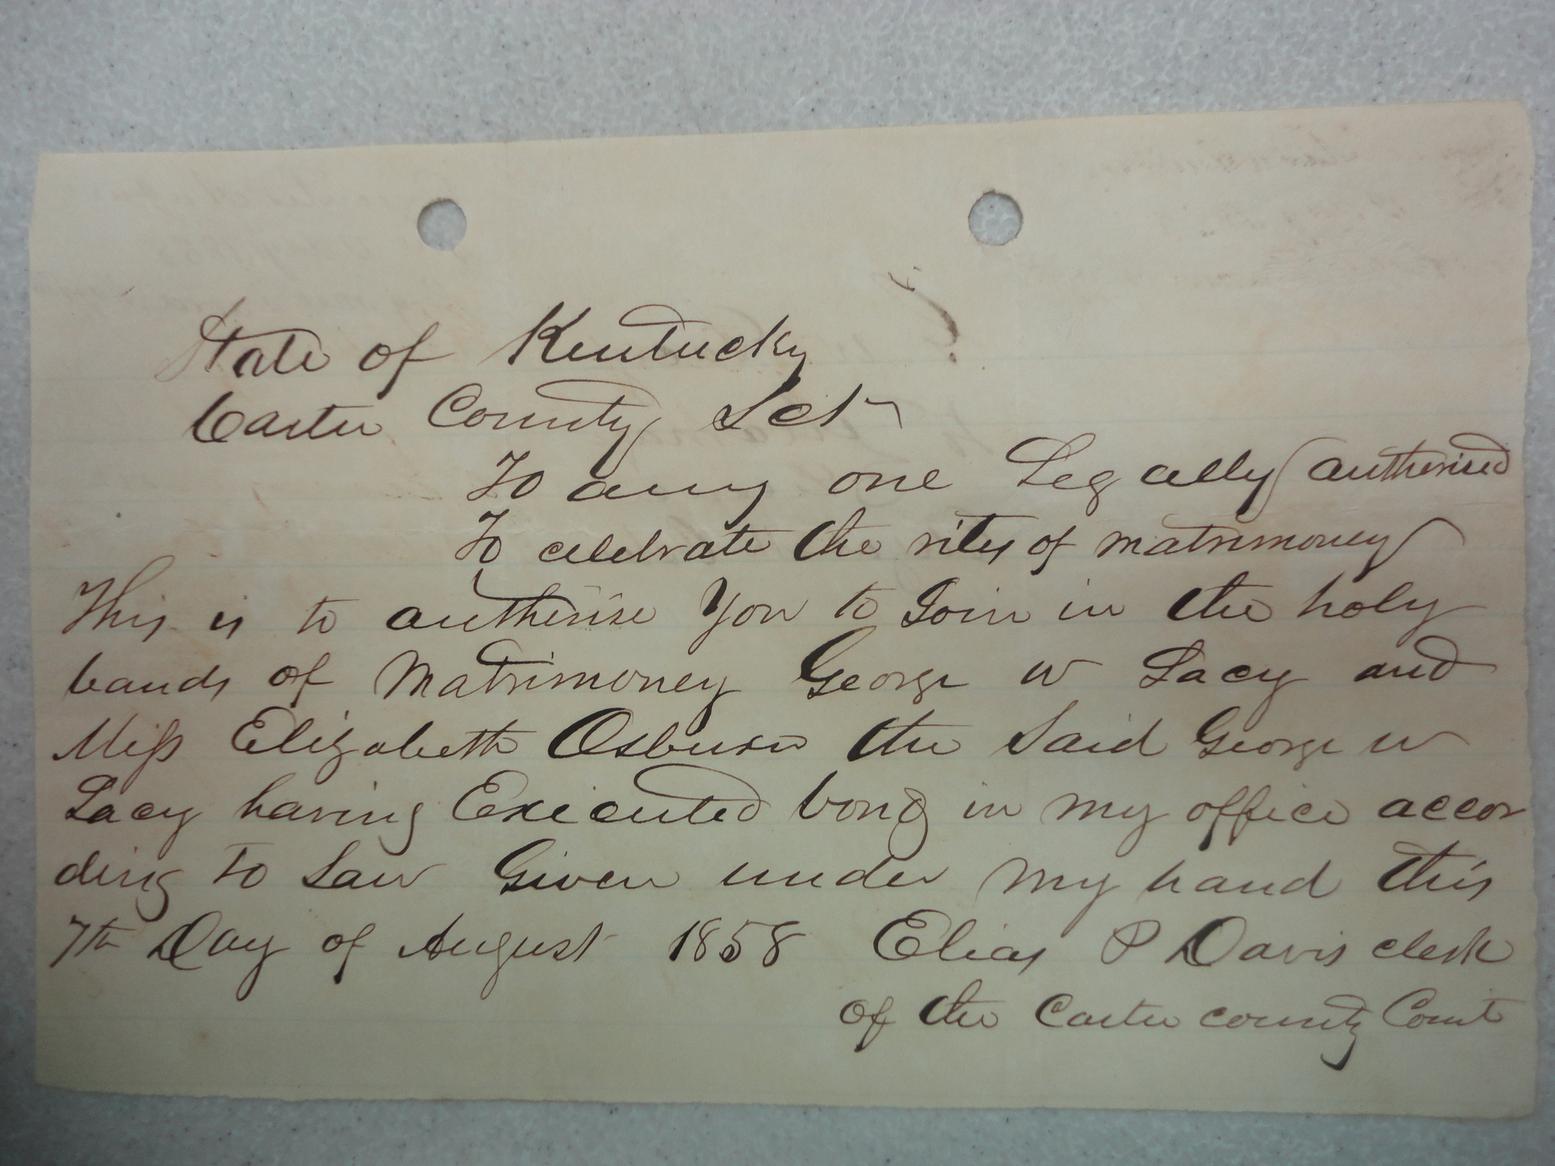 State of Kentucky
Carter County Sct
To any one Legally autherised
To celebrate the rites of matrimoney
This is to autherise You to Join in the holy
bands of Matrimoney George W Lacy and
Miss Elizabeth Osburn the Said George W
Lacy having Executed bond in my office accor
ding to Law Given under my hand this
7th Day of August 1858 Elias P Davis clerk
of the Carter county Court